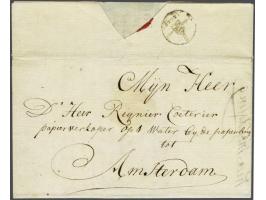 Mijn Heer
D'Heer Regnier Coeterier
papierverkoper op't Water by de papenbrug
tot
Amsterdam